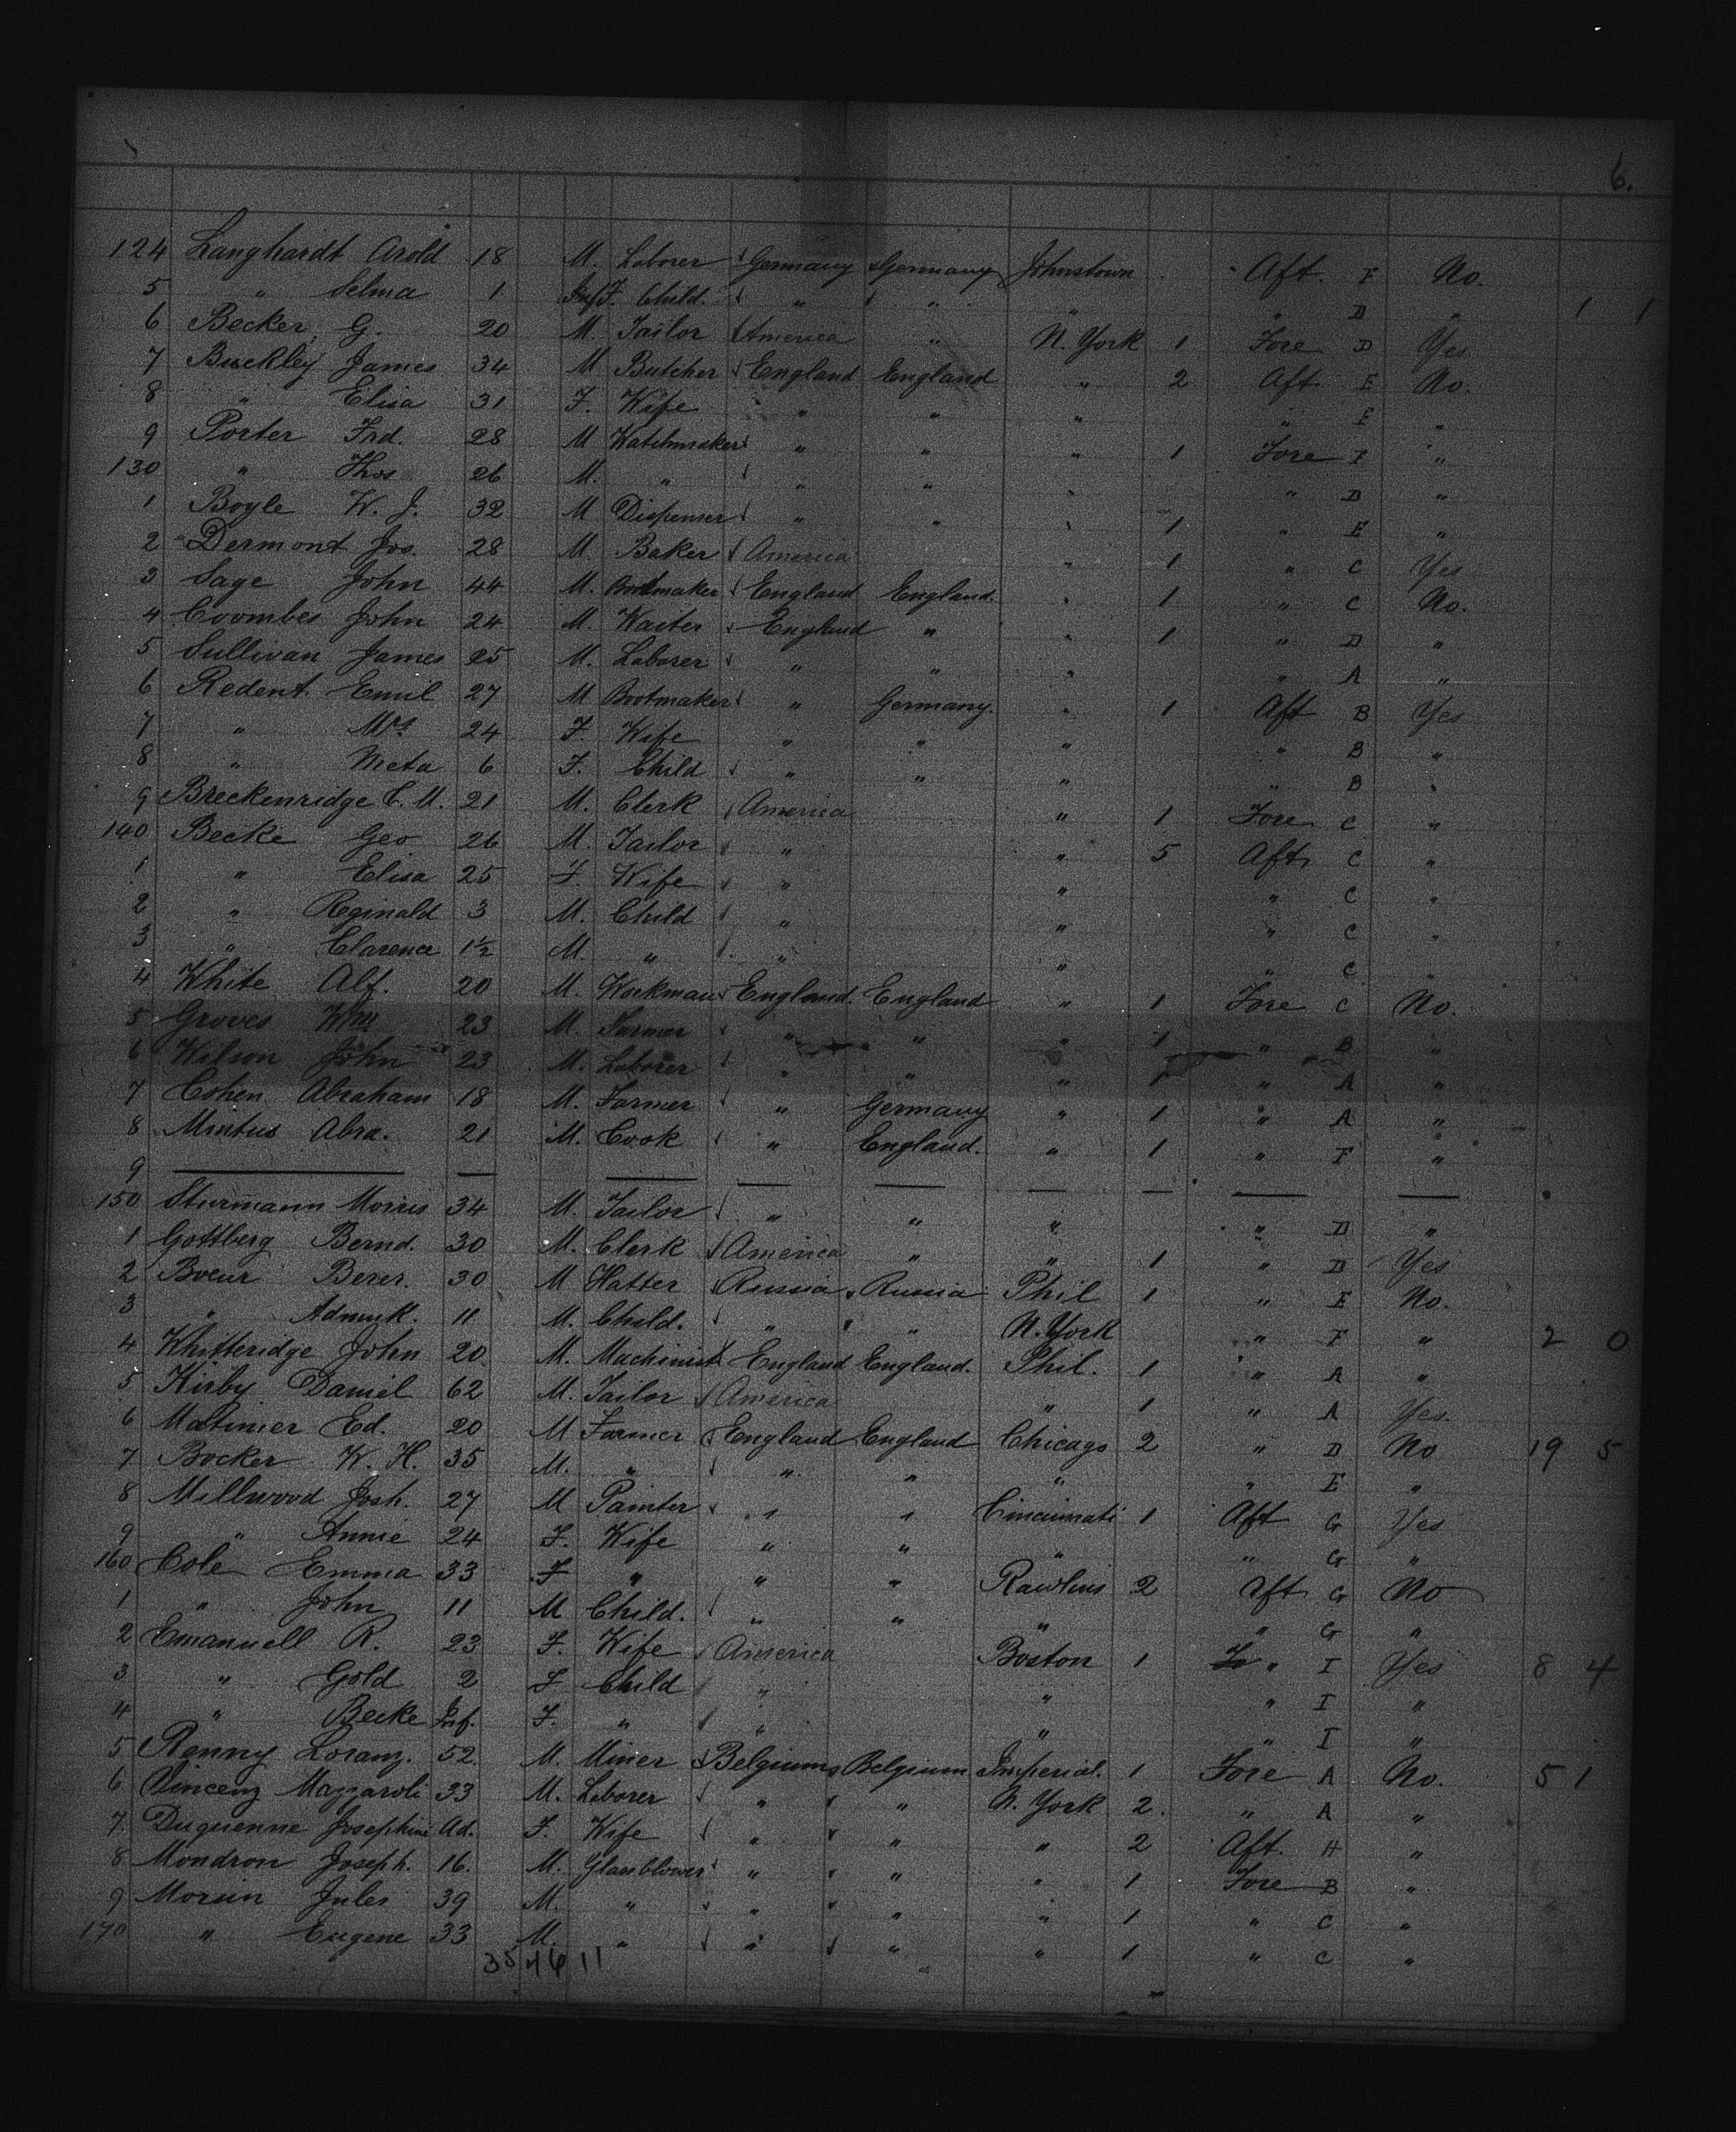 6.
124 Langhardt Arold 18 M. Laborer Germany Germany Johnstown Aft. F No.
5 " Selma 1 Inf F. Child. " " " " D " 1 1
6 Becker G. 20 M. Tailor America " N. York 1 Fore D Yes
7 Buckley James 34 M Butcher England England " 2 Aft E No.
8 " Elisa 31 F. Wife " " " " E "
9 Porter Frd. 28 M Watchmaker " " " 1 Fore F "
130 " Thos 26 M. " " " " " D "
1 Boyle W. J. 32 M Dispenser " " " 1 " E "
2 Dermont Jos. 28 M. Baker America " 1 " C Yes
3 Sage John 44 M. Bootmaker England England. " 1 " C No.
4 Coombes John 24 M. Waiter England " " 1 " D "
5 Sullivan James 25 M. Laborer " " " " A "
6 Redent Emil 27 M Bootmaker " Germany. " 1 Aft B Yes
7 " Mrs 24 F. Wife " " " " B "
8 " Meta 6 F. Child " " " " B "
9 Breckenridge C. M. 21 M. Clerk America " 1 Fore C "
140 Becke Geo 26 M. Tailor " " 5 Aft C "
1 " Elisa 25 F. Wife " " " C "
2 " Reginald 3 M. Child " " " C "
3 " Clarence 1½ M. " " " " C "
4 White Alf. 20 M. Workman England. England " 1 Fore C No.
5 Groves Wm 23 M. Farmer " " " 1 " B "
6 Wilson John 23 M. Laborer " " " 1 " A "
7 Cohen Abraham 18 M. Farmer " Germany " 1 " A "
8 Mintus Abra. 21 M. Cook " England. " 1 " F "
9 — — — — — — — — —
150 Sturmann Morris 34 M. Tailor " " " " D "
1 Gottberg Bernd. 30 M. Clerk America " " 1 " D Yes
2 Boeur Berer. 30 M Hatter Russia Russia Phil 1 " E No.
3 " 11 M. Child. " " N. York " F " 2 0
4 Whitteridge John 20 M. Machinist England England. Phil. 1 " A "
5 Kirby Daniel 62 M. Tailor America " 1 " A Yes.
6 Matinier Ed. 20 M Farmer England England Chicago 2 " D No 19 5
7 Bocker W. H. 35 M. " " " " " E "
8 Millwood Josh. 27 M Painter " " Cincinnati 1 Aft G Yes
9 " Annie 24 F. Wife " " " " G "
160 Cole Emma 33 F " " " Rawlins 2 Aft G No
1 " John 11 M Child. " " " " G "
2 Emanuell R. 23 F. Wife America Boston 1 " I Yes 8 4
3 " Gold 2 F Child " " " I "
4 " Becke Inf. F. " " " " I "
5 Ranny Loranz. 52 M. Miner Belgium Belgium Imperial. 1 Fore A No. 5 1
6 Vincenz Mazzaroli 33 M. Laborer " " N. York 2. " A "
7 Duquenne Josephine Ad. F. Wife " " " 2 Aft. H "
8 Mondron Joseph. 16. M. Glassblower " " " 1 Fore B "
9 Morsin Jules 39 M. " " " " 1 " C "
170 " Eugene 33 M. " " " " 1 " C "
35 46 11